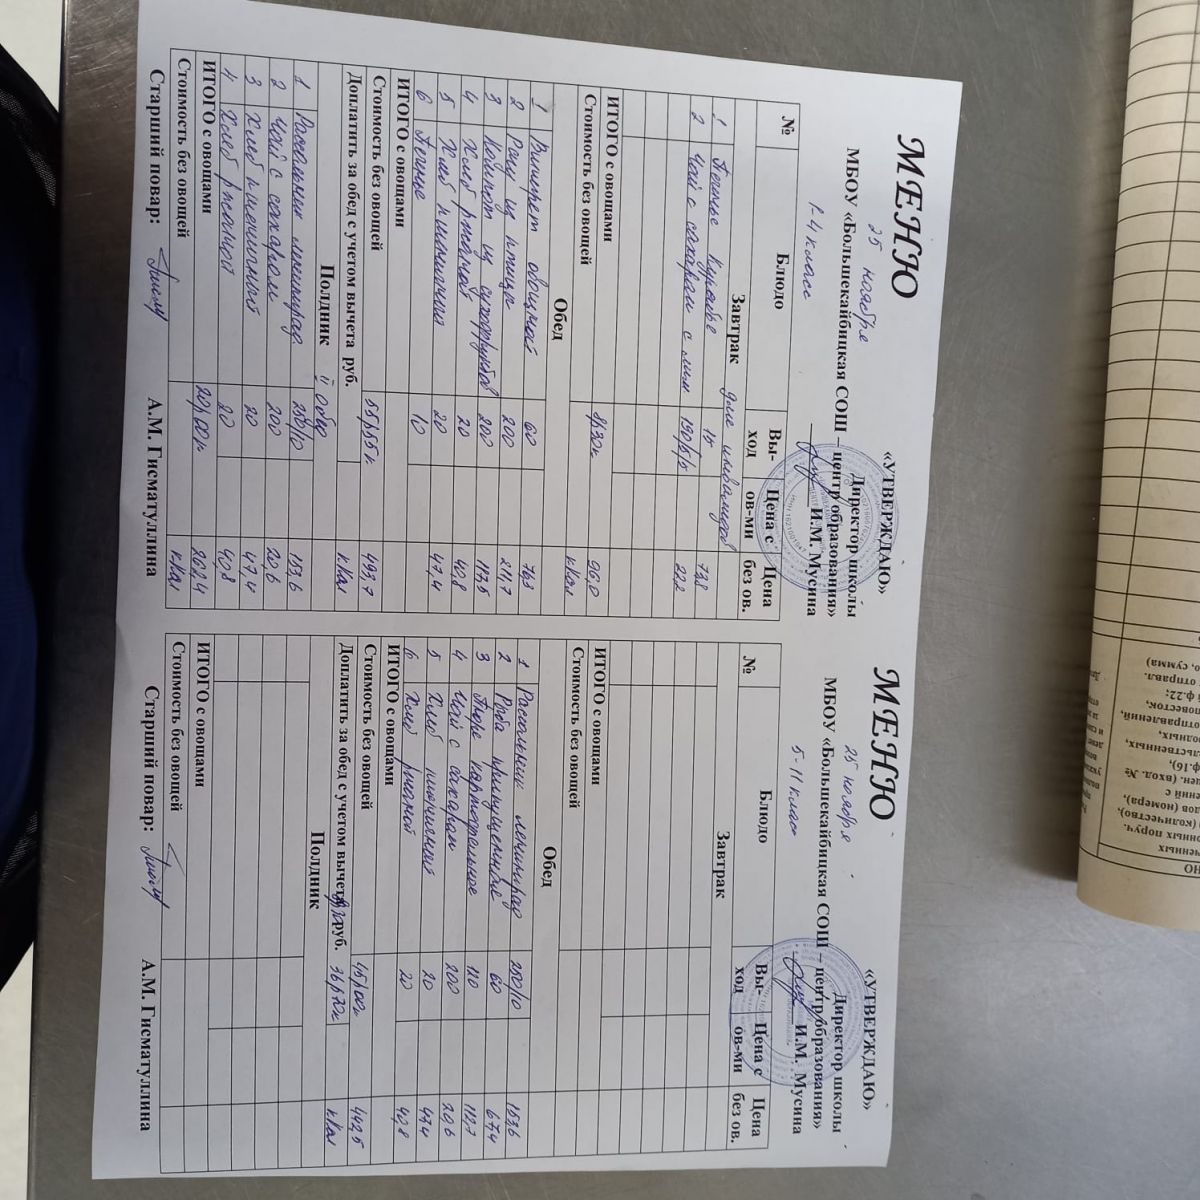 МЕНЮ
«УТВЕРЖДАЮ»
Директор школы
25 ноября
МБОУ «Большекайбицкая СОШ – центр образования»
И.М. Мусина
1-4 класс
№ Блюдо Вы-ход Цена с ов-ми Цена без ов.
Завтрак для инвалидов
1 Печенье курабье 15 73,8
2 Чай с сахаром с лим 190/5/5 22,2
ИТОГО с овощами 96,0
Стоимость без овощей 8р30к ккал
Обед
1 Винегрет овощной 60 76,3
2 Рагу из птицы 200 211,7
3 Компот из сухофруктов 200 113,5
4 Хлеб ржаной 20 40,8
5 Хлеб пшеничный 20 47,4
6 Печенье 10
ИТОГО с овощами 493,7
Стоимость без овощей 55р55к ккал
Доплатить за обед с учетом вычета руб.
Полдник II обед
1 Рассольник ленинград 250/10 153,6
2 Чай с сахаром 200 20,6
3 Хлеб пшеничный 20 47,4
4 Хлеб ржаной 20 40,8
ИТОГО с овощами 20р00к 262,4
Стоимость без овощей ккал
Старший повар: А.М. Гисматуллина
МЕНЮ
«УТВЕРЖДАЮ»
Директор школы
25 ноября
МБОУ «Большекайбицкая СОШ – центр образования»
И.М. Мусина
5-11 класс
№ Блюдо Вы-ход Цена с ов-ми Цена без ов.
Завтрак
ИТОГО с овощами
Стоимость без овощей
Обед
1 Рассольник ленинград 250/10 153,6
2 Рыба припущенная 60 67,4
3 Пюре картофельное 110 112,7
4 Чай с сахаром 200 20,6
5 Хлеб пшеничный 20 47,4
6 Хлеб ржаной 20 40,8
ИТОГО с овощами 442,5
Стоимость без овощей 45р00к ккал
Доплатить за обед с учетом вычета руб. 36р70к
Полдник
ИТОГО с овощами
Стоимость без овощей
Старший повар: А.М. Гисматуллина